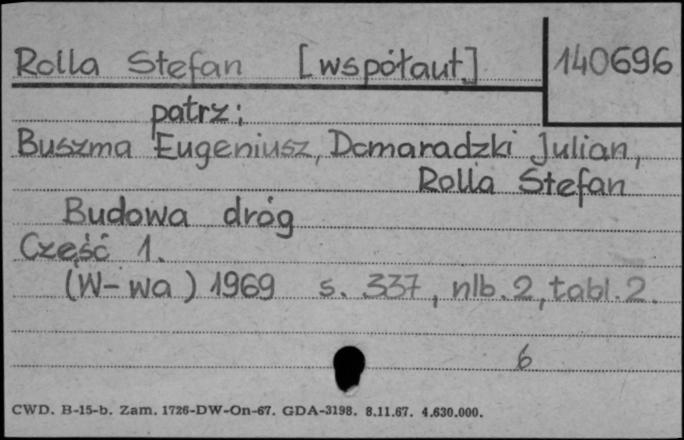 Rolla Stefan [współaut.] 140696
patrz:
Buszma Eugeniusz, Domaradzki Julian,
Rolla Stefan
Budowa dróg
Część 1.
(W-wa) 1969 s. 337, nlb. 2, tabl. 2.
6
CWD. B-15-b. Zam. 1726-DW-On-67. GDA-3198. 8.11.67. 4.630.000.